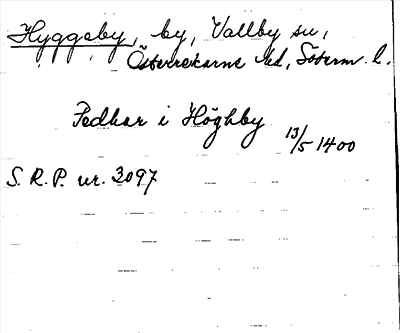 Hyggeby, by, Vallby sn,
Österrekarne hd, Söderm. l.
Pedhar i Höghby
13/5 1400
S. R. P. nr. 3097